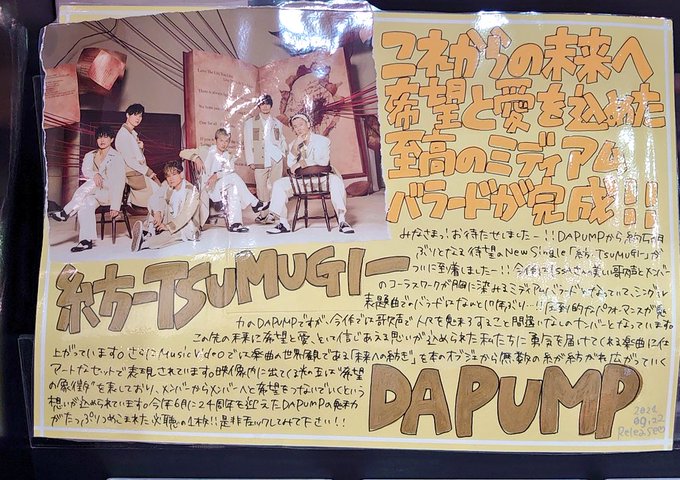 コネからの未来へ
希望と愛を込めた
至高のミディアム
バラードが完成!!
みなさまっ!お待たせしましたー!!DA PUMPから約5ヶ月
ぶりとなる待望のNew Single「紡-TSUMUGI-」が
ついに到着しましたー!!今作はISSAさんの美しい歌声とメンバー
のコーラスワークが胸に染みるミディアムバラードとなっています。シングル
表題曲でバラードはなんと10年ぶり…!!圧倒的なパフォーマンスが魅
力のDA PUMPですが、今作では歌声で人々を魅了すること間違いなしのナンバーとなっています。
この先の未来に希望と愛、として信じある思いが込められた私たちに勇気を届けてくれる楽曲に仕
上がっています。さらにMusic Videoでは楽曲の世界観である「未来への紡ぎ」を本のオブジェから無数の糸が紡がれ広がっていく
アートなセットで表現されています。映像内に出てくる光の玉は"希望
の象徴"を表しており、メンバーからメンバーへと希望をつないでいくという
想いが込められています。今年6月に24周年を迎えたDA PUMPの魅力
がたっぷりつめこまれた必聴の1枚!!是非チェックしてみて下さい!!
紡-TSUMUGI-
DA PUMP
2021
09.22
Release♡